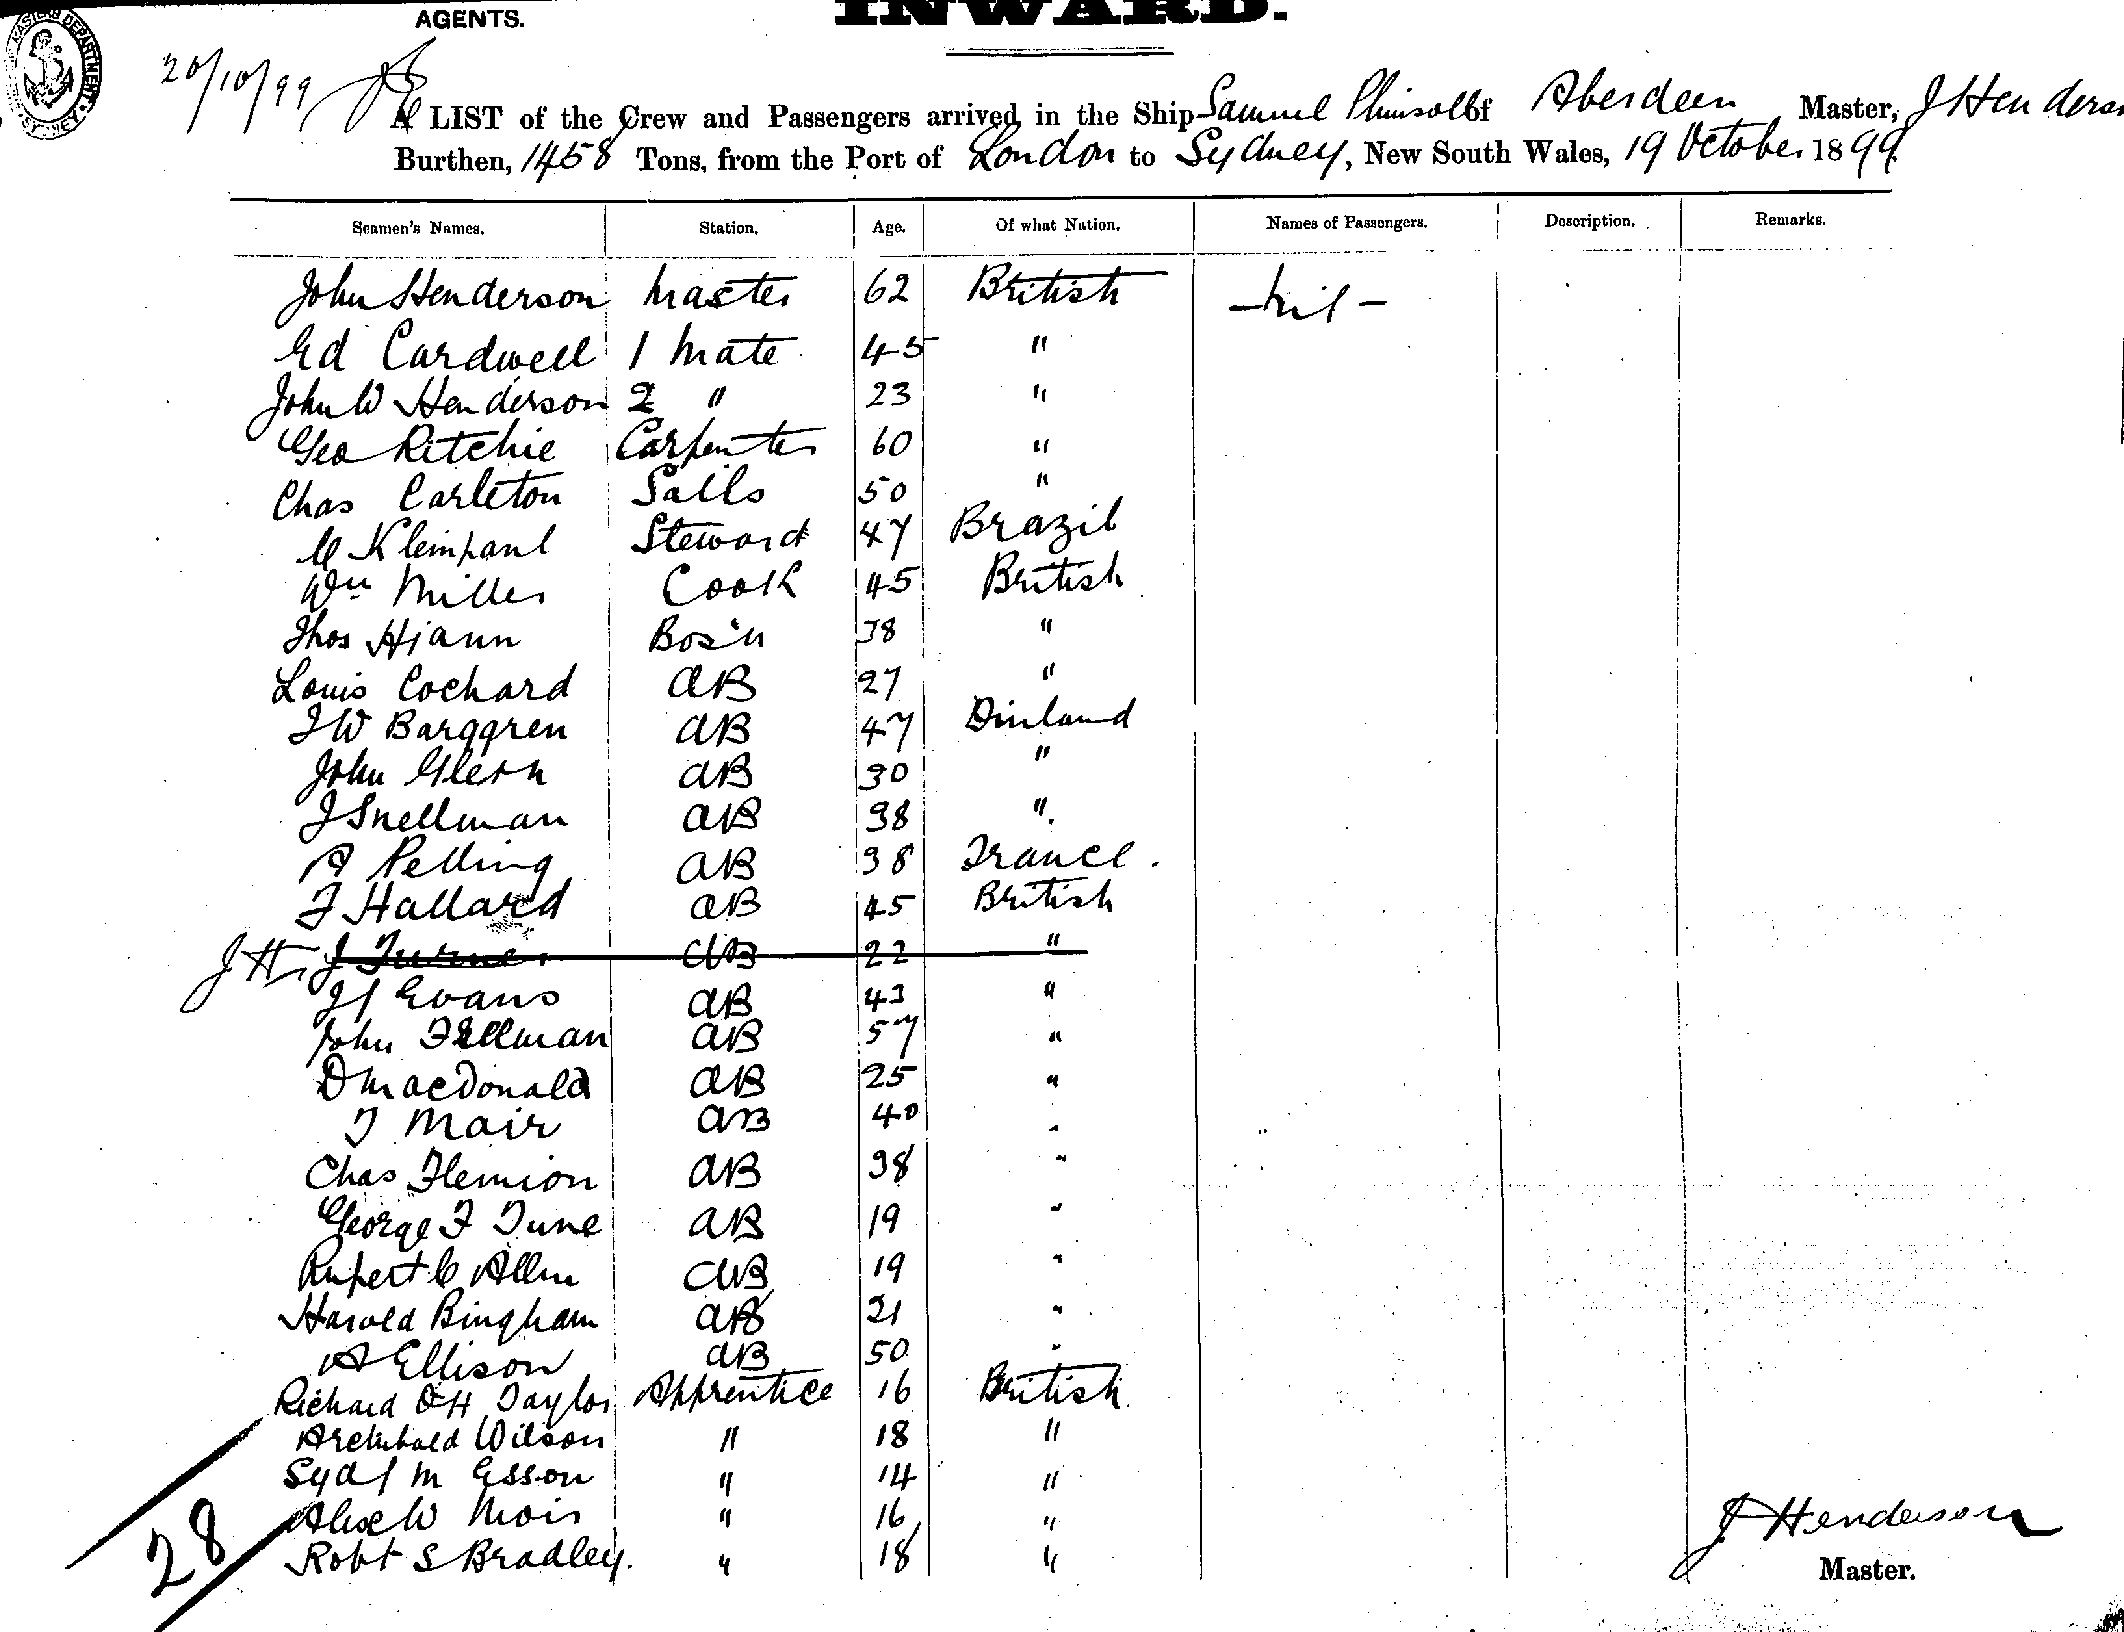 AGENTS.
INWARD.
20/10/99
A LIST of the Crew and Passengers arrived in the Ship Samuel Plimsoll of Aberdeen Master, J Henderson
Burthen, 1458 Tons, from the Port of London to Sydney, New South Wales, 19 October 1899
Seamen's Names. Station. Age. Of what Nation. Names of Passengers. Description. Remarks.
John Henderson Master 62 British - Nil -
Ed Cardwell 1 Mate 45 "
John W Henderson 2 " 23 "
Geo Ritchie Carpenter 60 "
Chas Carleton Sails 50 "
Kleinpaul Steward 47 Brazil
Wm Miller Cook 45 British
Thos Hjann Bos'n 38 "
Louis Cochard AB 27 "
J W Barggren AB 47 Finland
John Glern AB 30 "
J Snellman AB 38 "
A Pelling AB 38 France.
F Hallard AB 45 British
JH J Turner AB 22 "
J J Evans AB 43 "
John Fellman AB 57 "
D MacDonald AB 25 "
J Mair AB 40 "
Chas Flemion AB 38 "
George F Tune AB 19 "
Rupert C Allen AB 19 "
Harold Bingham AB 21 "
A Ellison AB 50 "
Richard O H Taylor Apprentice 16 British
Archibald Wilson " 18 "
Syd M Esson " 14 "
Alex W Moir " 16 "
Robt S Bradley. " 18 "
28
J Henderson
Master.